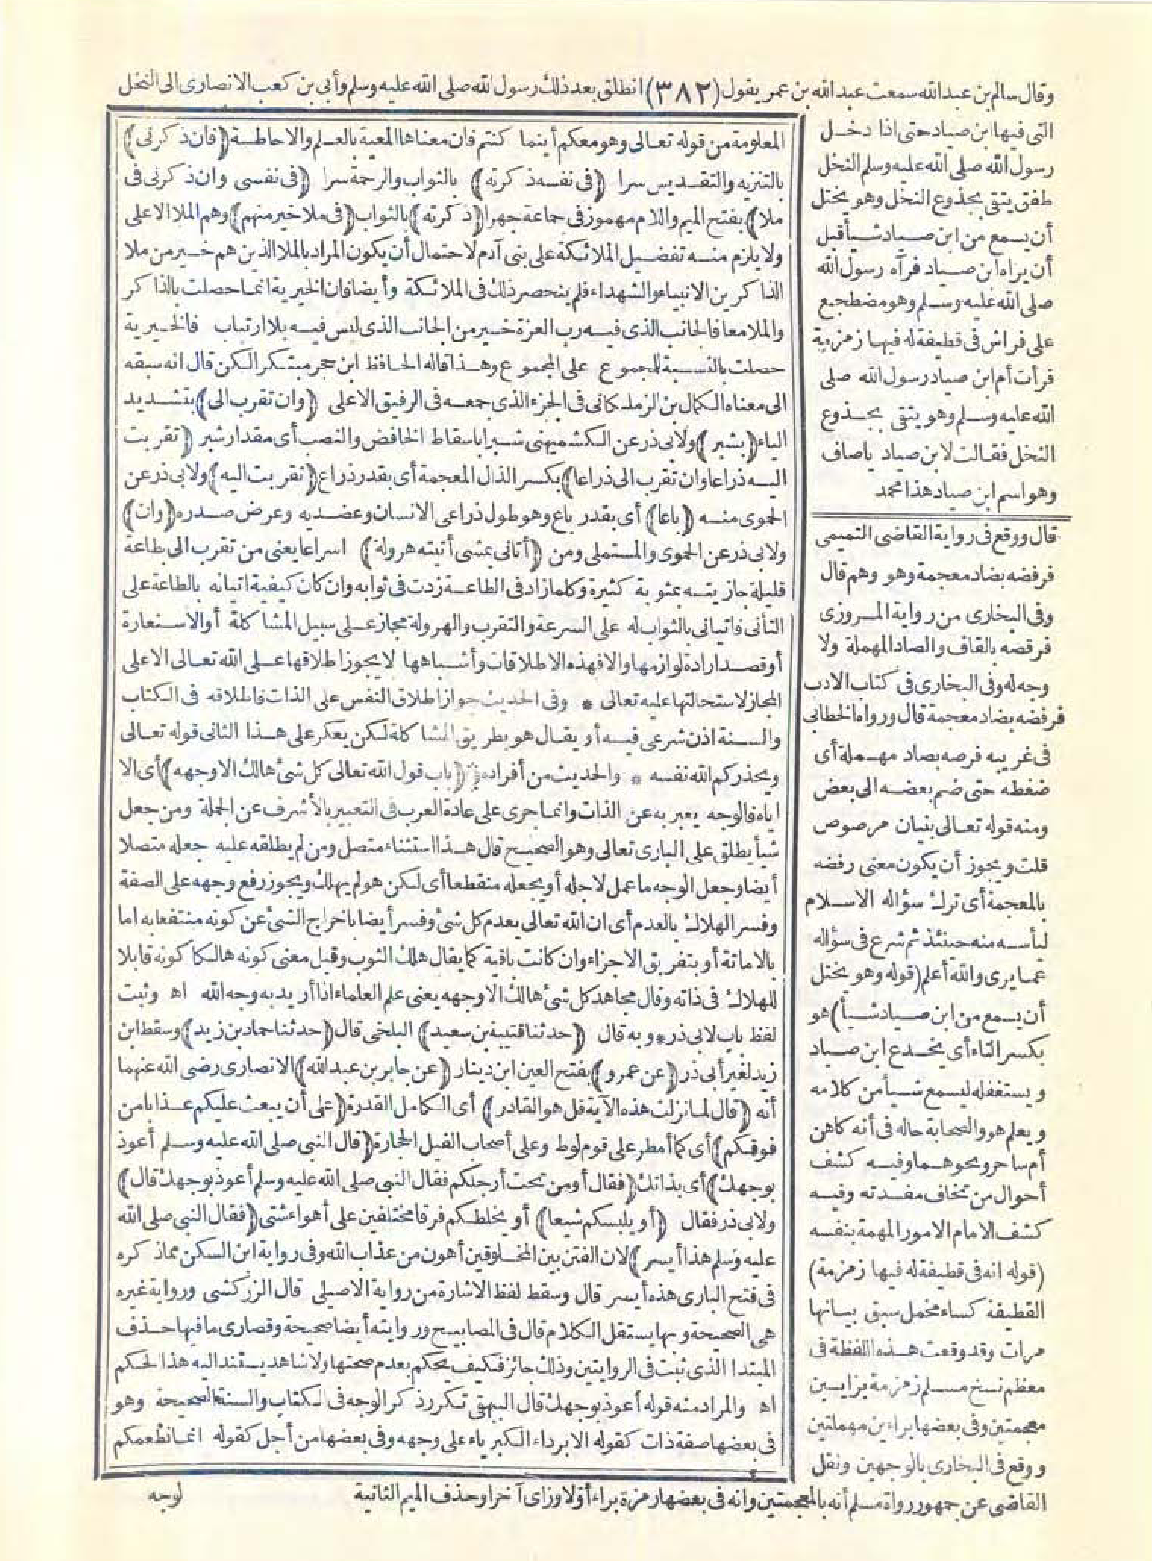 وقال سالم بن عبدالله سمعت عبدالله بن عمر يقول (٣٨٢) انطلق بعد ذلك رسول لله صلى الله عليه وسلم وأبي بن كعب الانصارى الى النخل
التى فيها ابن صياد حتى اذا دخل
رسول الله صلى الله عليه وسلم النخل
طفق يتقى بجذوع النخل وهو يختل
أن يسمع من ابن صياد شيأ قبل
أن يراه ابن صياد فرآه رسول الله
صلى الله عليه وسلم وهو مضطجع
على فراش فى قطيفة له فيها زمزمة
فرأت أم ابن صياد رسول الله صلى
الله عليه وسلم وهو يتقى بجذوع
النخل فقالت لابن صياد ياصاف
وهو اسم ابن صياد هذا محمد
قال ووقع فى رواية القاضى التميمى
فرفضه بضاد معجمة وهو وهم قال
وفى البخارى من رواية المروزى
فرقصه بالقاف والصاد المهملة ولا
وجه له وفى البخارى فى كتاب الادب
فرفضه بضاد معجمة قال ورواه الخطابى
فى غريبه فرصه بصاد مهملة أى
ضغطه حتى ضم بعضه الى بعض
ومنه قوله تعالى بنيان مرصوص
قلت ويجوز أن يكون معنى رفضه
بالمعجمة أى ترك سؤاله الاسلام
ليأسه منه حينئذ ثم شرع فى سؤاله
عما يرى والله أعلم (قوله وهو يختل
أن يسمع من ابن صياد شيأ) هو
بكسر التاء أى يخدع ابن صياد
ويستغفله ليسمع شيأ من كلامه
ويعلم هو والصحابة حاله فى أنه كاهن
أم ساحر ونحوهما وفيه كشف
أحوال من تخاف مفسدته وفيه
كشف الامام الامور المهمة بنفسه
(قوله انه فى قطيفة له فيها زمزمة)
القطيفة كساء مخمل سبق بيانها
مرات وقد وقعت هذه اللفظة فى
معظم نسخ مسلم زمزمة بزايين
معجمتين وفى بعضها براءين مهملتين
ووقع فى البخارى بالوجهين ونقل
القاضى عن جمهور رواة مسلم أنه بالمعجمتين وانه فى بعضها رمزة براء أولا وزاى آخرا وحذف الميم الثانية
المعلومة من قوله تعالى وهو معكم أينما كنتم فان معناها المعية بالعلم والاحاطة (فان ذكرنى)
بالتنزيه والتقديس سرا (فى نفسه ذكرته) بالثواب والرحمة سرا (فى نفسى وان ذكرنى فى
ملا) بفتح الميم واللام مهموز فى جماعة جهرا (ذكرته) بالثواب (فى ملا خير منهم) وهم الملا الاعلى
ولا يلزم منه تفضيل الملائكة على بنى آدم لاحتمال أن يكون المراد بالملا الذين هم خير من ملا
الذاكرين الانبياء والشهداء فلم ينحصر ذلك فى الملائكة وأيضا فان الخيرية انما حصلت بالذاكر
والملا معا فالجانب الذى فيه رب العزة خير من الجانب الذى ليس فيه بلا ارتياب فالخيرية
حصلت بالنسبة للمجموع على المجموع وهذا قاله الحافظ ابن حجر مبتكرا لكن قال انه سبقه
الى معناه الكمال بن الزملكانى فى الجزء الذى جمعه فى الرفيق الاعلى (وان تقرب الى) بتشديد
الياء (بشبر) ولابى ذر عن الكشميهنى شبرا باسقاط الخافض والنصب أى مقدار شبر (تقربت
اليه ذراعا وان تقرب الى ذراعا) بكسر الذال المعجمة أى بقدر ذراع (تقربت اليه) ولابى ذر عن
الحموى منه (باعا) أى بقدر باع وهو طول ذراعى الانسان وعضديه وعرض صدره (وان)
ولابى ذر عن الحموى والمستملى ومن (أتانى يمشى أتيته هرولة) اسراعا يعنى من تقرب الى طاعة
قليلة جازيته بمثوبة كثيرة وكلما زاد فى الطاعة زدت فى ثوابه وان كان كيفية اتيانه بالطاعة على
التأنى فاتيانى بالثواب له على السرعة والتقرب والهرولة مجاز على سبيل المشاكلة أو الاستعارة
أو قصد ارادة لوازمها والا فهذه الاطلاقات وأشباهها لا يجوز اطلاقها على الله تعالى الا على
المجاز لاستحالتها عليه تعالى * وفى الحديث جواز اطلاق النفس على الذات فاطلاقه فى الكتاب
والسنة اذن شرعى فيه أو يقال هو بطريق المشاكلة لكن يعكر على هذا الثانى قوله تعالى
ويحذركم الله نفسه * والحديث من أفراده (باب قول الله تعالى كل شئ هالك الا وجهه) أى الا
اياه فالوجه يعبر به عن الذات وانما جرى على عادة العرب فى التعبير بالأشرف عن الجملة ومن جعل
شيأ يطلق على البارى تعالى وهو الصحيح قال هذا استثناء متصل ومن لم يطلقه عليه جعله متصلا
أيضا وجعل الوجه ما عمل لاجله أو يجعله منقطعا أى لكن هو لم يهلك ويجوز رفع وجهه على الصفة
وفسر الهلاك بالعدم أى ان الله تعالى يعدم كل شئ وفسر أيضا باخراج الشئ عن كونه منتفعا به اما
بالاماتة أو بتفريق الاجزاء وان كانت باقية كما يقال هلك الثوب وقيل معنى كونه هالكا كونه قابلا
للهلاك فى ذاته وقال مجاهد كل شئ هالك الا وجهه يعنى علم العلماء اذا أريد به وجه الله اه وثبت
لفظ باب لابى ذر * وبه قال (حدثنا قتيبة بن سعيد) البلخى قال (حدثنا حماد بن زيد) وسقط ابن
زيد لغير أبى ذر (عن عمرو) بفتح العين ابن دينار (عن جابر بن عبدالله) الانصارى رضى الله عنهما
أنه (قال لما نزلت هذه الآية قل هو القادر) أى الكامل القدرة (على أن يبعث عليكم عذابا من
فوقكم) أى كما أمطر على قوم لوط وعلى أصحاب الفيل الحجارة (قال النبى صلى الله عليه وسلم أعوذ
بوجهك) أى بذاتك (فقال أو من تحت أرجلكم فقال النبى صلى الله عليه وسلم أعوذ بوجهك قال)
ولابى ذر فقال (أو يلبسكم شيعا) أو يخلطكم فرقا مختلفين على أهواء شتى (فقال النبى صلى الله
عليه وسلم هذا أيسر) لان الفتن بين المخلوقين أهون من عذاب الله وفى رواية ابن السكن مما ذكره
فى فتح البارى هذه أيسر قال وسقط لفظ الاشارة من رواية الاصيلى قال الزركشى ورواية غيره
هى الصحيحة وبها يستقل الكلام قال فى المصابيح وروايته أيضا صحيحة وقصارى ما فيها حذف
المبتدا الذى ثبت فى الروايتين وذلك جائز فكيف يحكم بعدم صحتها ولا شاهد يستند اليه هذا الحكم
اه والمراد منه قوله أعوذ بوجهك قال البيهقى تكرر ذكر الوجه فى الكتاب والسنة الصحيحة وهو
فى بعضها صفة ذات كقوله الا برداء الكبرياء على وجهه وفى بعضها من أجل كقوله انما نطعمكم
لوجه